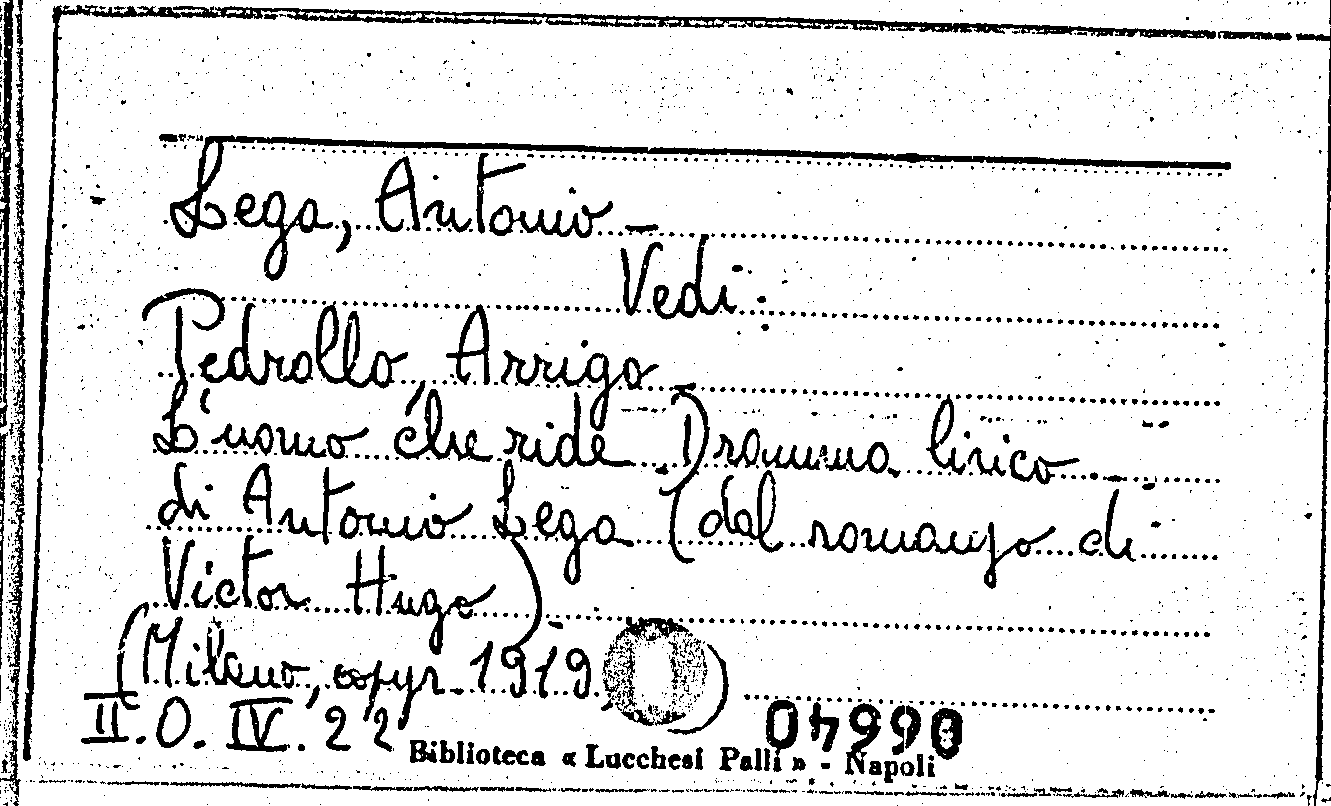 Lega, Antonio –
Vedi:
Pedrollo, Arrigo
L'uomo che ride. Dramma lirico
di Antonio Lega (dal romanzo di
Victor Hugo)
(Milano, copyr. 1919)
II. O. IV. 22
06640
Biblioteca « Lucchesi Palli » - Napoli